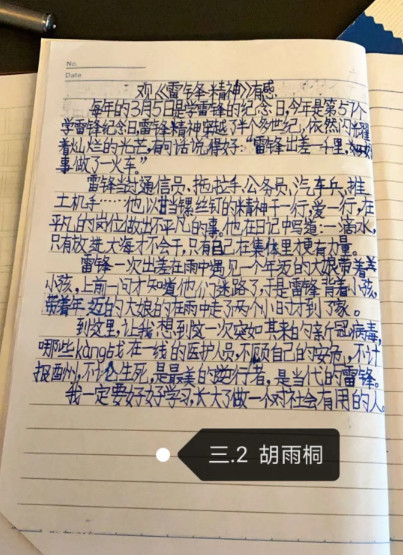 No.
Date
观《雷锋精神》有感
每年的3月5日是学雷锋的纪念日,今年是第57个
学雷锋纪念日,雷锋精神穿越了半个多世纪,依然闪耀
着灿烂的光芒,有句话说得好:“雷锋出差一千里,好
事做了一火车。”
雷锋当过通信员、拖拉手、公务员、汽车兵、推
土机手……他以甘当螺丝钉的精神干一行,爱一行,在
平凡的岗位做出不平凡的事。他在日记中写道:一滴水,
只有放进大海才不会干,只有自己在集体里才更有力量。
雷锋一次出差在雨中遇见一个年迈的大娘带着
小孩,上前一问才知道他们迷路了,于是雷锋背着小孩,
带着年迈的大娘的在雨中走了两个小时才到了家。
到这里,让我想到这一次突如其来的新冠病毒,
哪些kàng战在一线的医护人员,不顾自己的安危,不计
报酬州,不论生死,是最美的逆行者,是当代的雷锋。
我一定要好好学习,长大了做一个对社会有用的人。
三.2 胡雨桐